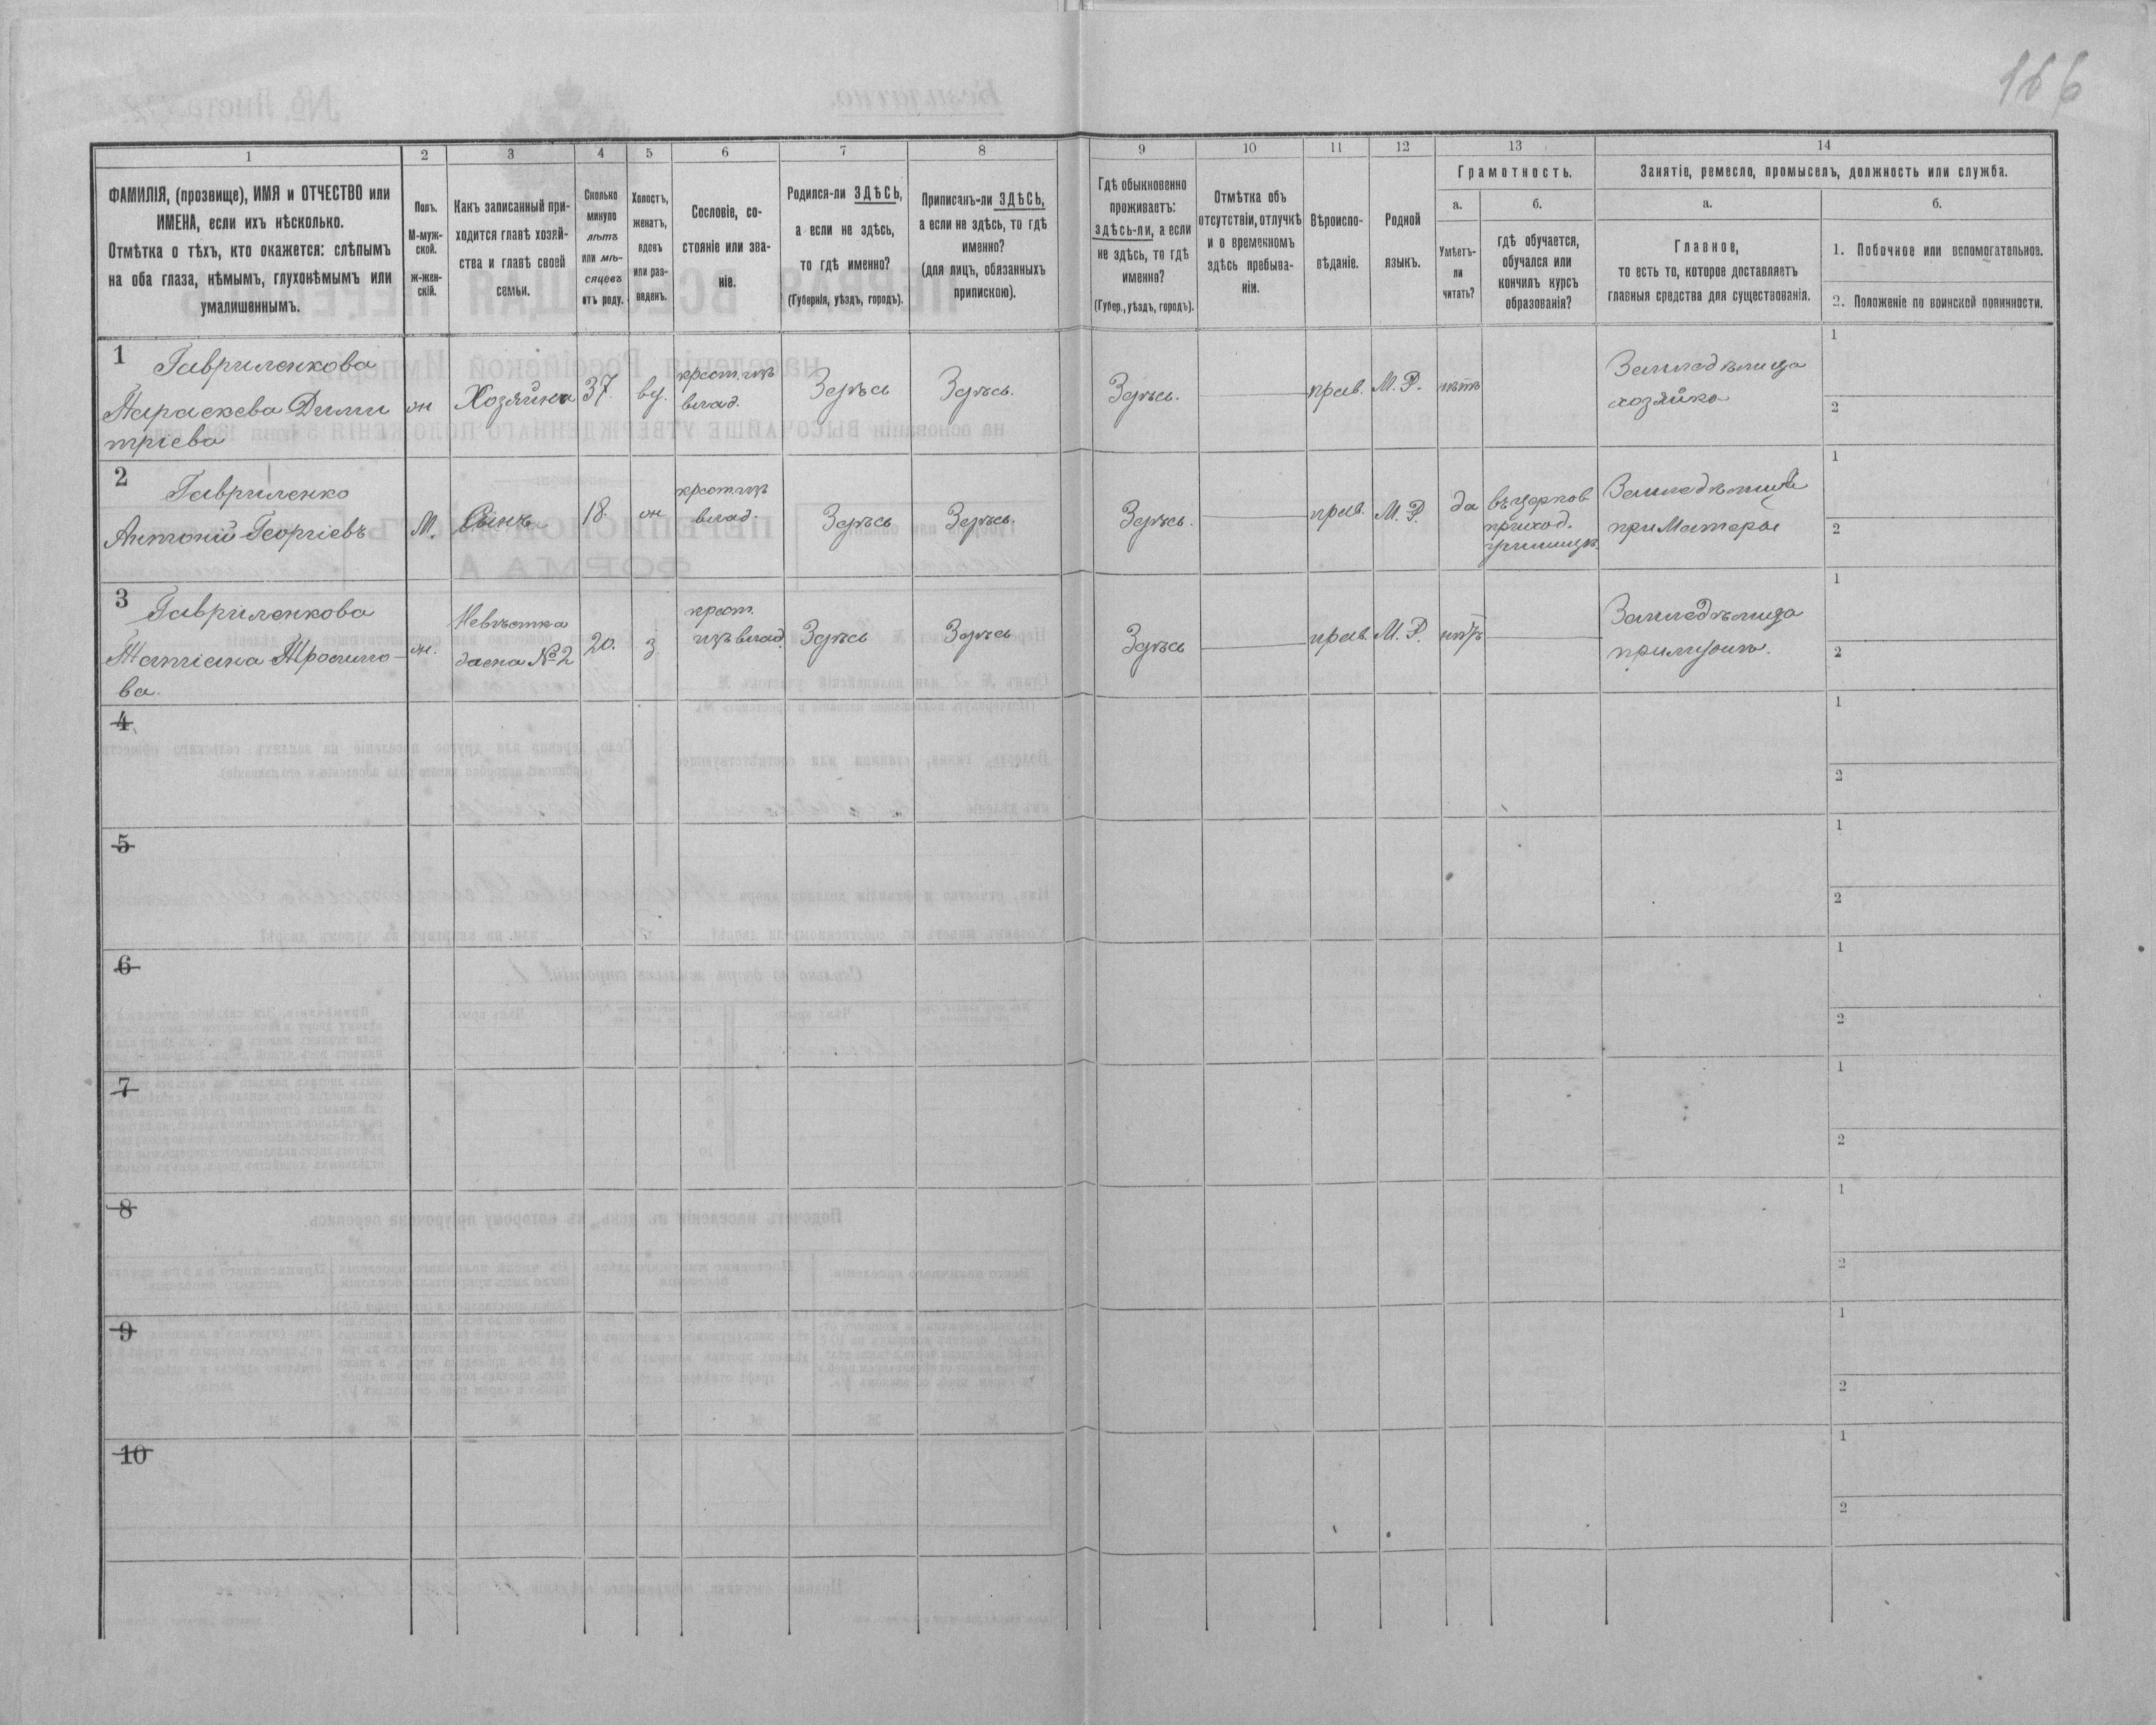 166
1
2
3
4
5
6
7
8
9
10
11
12
13
14
ФАМИЛІЯ, (прозвище), ИМЯ и ОТЧЕСТВО или
ИМЕНА, если ихъ нѣсколько.
Отмѣтка о тѣхъ, кто окажется: слѣпымъ
на оба глаза, нѣмымъ, глухонѣмымъ или
умалишеннымъ.
Полъ.
М-муж-
ской.
ж-жен-
скій.
Какъ записанный при-
ходится главѣ хозяй-
ства и главѣ своей
семьи.
Сколько
минуло
лѣтъ
или мѣ-
сяцевъ
отъ роду.
Холостъ,
женатъ,
вдовъ
или раз-
веденъ.
Сословіе, со-
стояніе или зва-
ніе.
Родился-ли ЗДѢСЬ,
а если не здѣсь,
то гдѣ именно?
(Губернія, уѣздъ, городъ).
Приписанъ-ли ЗДѢСЬ,
а если не здѣсь, то гдѣ
именно?
(для лицъ, обязанныхъ
припискою).
Гдѣ обыкновенно
проживаетъ:
здѣсь-ли, а если
не здѣсь, то гдѣ
именно?
(Губер., уѣздъ, городъ).
Отмѣтка объ
отсутствіи, отлучкѣ
и о временномъ
здѣсь пребыва-
ніи.
Вѣроиспо-
вѣданіе.
Родной
языкъ.
Грамотность.
а.
Умѣетъ-
ли
читать?
б.
гдѣ обучается,
обучался или
кончилъ курсъ
образованія?
Занятіе, ремесло, промыселъ, должность или служба.
а.
Главное,
то есть то, которое доставляетъ
главныя средства для существованія.
б.
1. Побочное или вспомогательное.
2. Положеніе по воинской повинности.
1
Гавриленкова
Параскева Дими
тріева
ж
Хозяйка
37.
вд.
крест. изъ
влад.
Здѣсь
Здѣсь.
Здѣсь.
прав.
М. Р.
нѣтъ
Земледѣлица
хозяйка
1
2
2
Гавриленко
Антоній Георгіевъ
М.
Сынъ
18.
ж
крест. изъ
влад.
Здѣсь
Здѣсь.
Здѣсь.
прав.
М. Р.
да
въ церков
приход.
при Матери
1
2
3
Гавриленкова
Татіана Трофимо-
ва.
ж.
Невѣстка
№ 2
20.
з.
крест.
изъ влад.
Здѣсь
Здѣсь
Здѣсь
прав.
М. Р.
нѣтъ
Земледѣлица
при мужѣ.
1
2
4
1
2
5
1
2
6
1
2
7
1
2
8
1
2
9
1
2
10
1
2